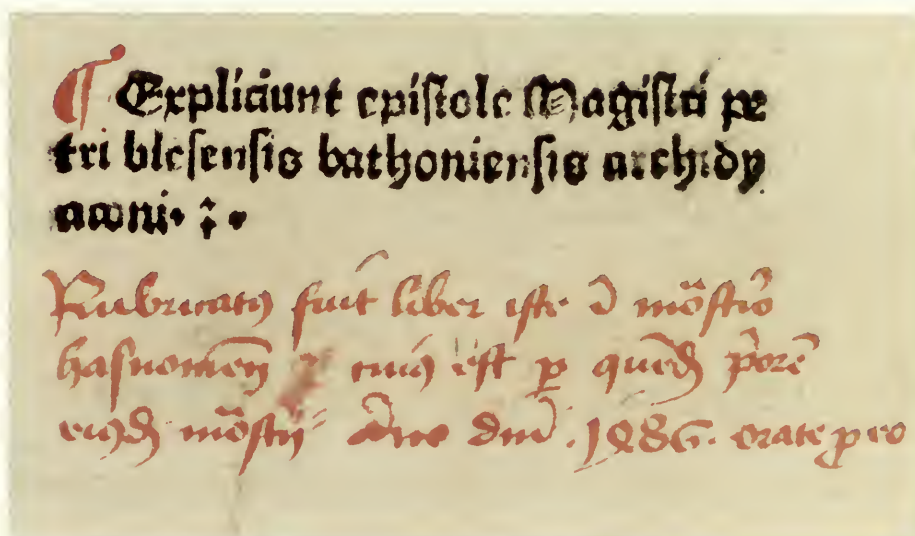 ¶ Expliciunt epistole Magistri pe
tri blesensis bathoniensis archidy
aconi. : .
Rubricatꝯ fuit liber iste ī mōstrio
hasnonien̄ cuiꝯ est ꝑ quēdā priorē
eiꝯdē mōstrij Anno dn̄i .1486. orate ꝓ eo